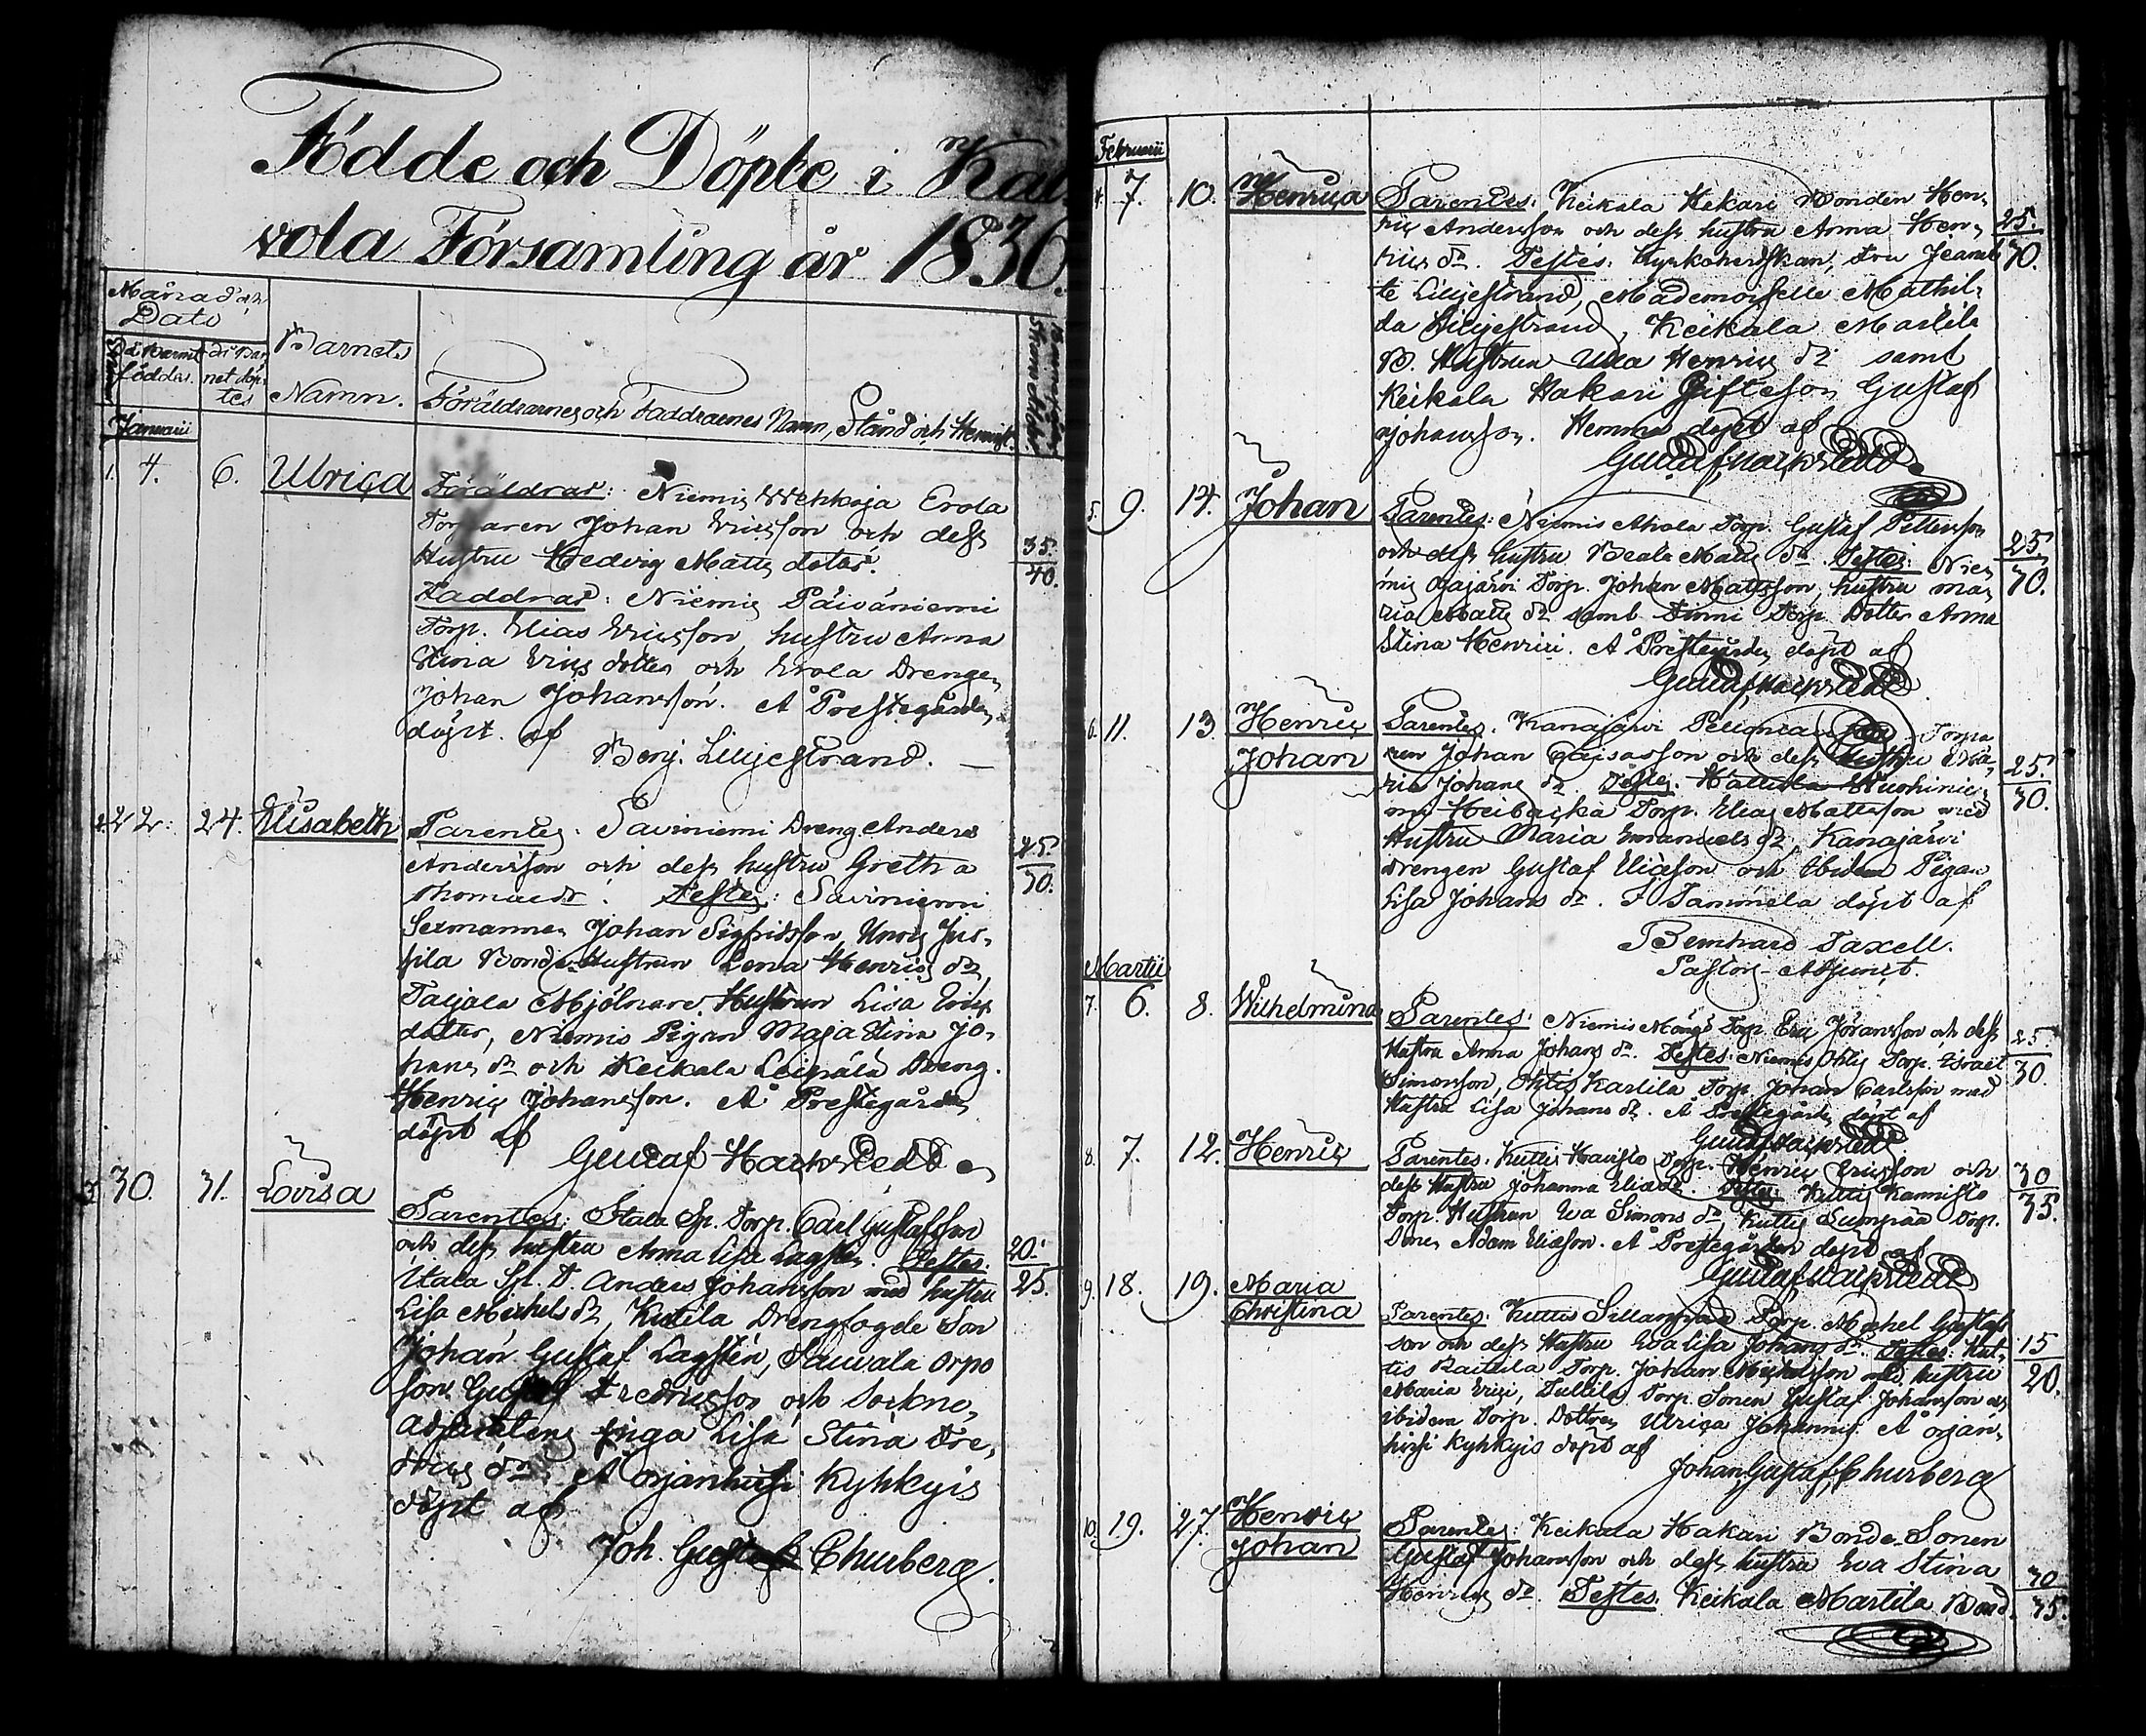 Födde och Döpte i Kal
vola Församling år 1830.
Månad och
Dato
Barnets
Namn.
då Barnet
föddes.
då Bar
net döp
tes
Föräldrarnes och Faddrarnes Namn, Stånd och Hemvist.
Januarii
1. 4. 6. Ulrica Föräldrar: Niemis Erola
Torparen Johan Ericsson och dess
Hustru Hedvig Matts dotter. 35. 40.
Faddrar: Niemis Päiväniemi
Torp. Elias Ericsson, hustru Anna
Stina Erics dotter och Erola Drengen
Johan Johansson. Å Prestegården
döpt af
Benj. Liljestrand.
2. 22. 24. Elisabeth Parentes: Saviniemi Dreng Anders
Andersson och dess hustru Gretha 25. 30.
Thomasdr. Testes: Saviniemi
Johan Sigfridsson,
Bonde Hustrun Lena Henrics dr,
Mjölnare Hustrun Lisa Erics
dotter, Niemis Pigan Maja Stina Jo-
hans dr och Keikala Dreng
Henric Johansson. Å Prestegården
döpt af
Gustaf
3. 30. 31. Lovisa Parentes: Torp. Carl Gustafsson
och dess hustru Anna Lisa Lagstén. Testes: 20. 25.
Anders Johansson med hustru
Lisa Michels dr, Kutila Drengfogde Son
Johan Gustaf Lagstén, Orpo
son Gustaf Fredricsson och Sockne
Adjutantens piga Lisa Stina Fre,
drics dr. Å Orjanhirsi Kyhkyis
döpt af
Joh. Gustaf Churberg.
Februarii
4. 7. 10. Henrica Parentes: Keikala Bonden Hen,
ric Andersson och dess hustru Anna Hen, 25. 30.
rics dr. Testes: Kyrkoherdskan, Fru Jeanet
te Liljestrand, Mademoiselle Mathil,
da Liljestrand, Keikala Martila
B. Hustrun Ulla Henrics dr samt
Keikala Hakari Gifte son Gustaf
Johansson. Hemma döpt af
Gustaf
5. 9. 14. Johan Parentes: Niemis Ahola Torp. Gustaf Pettersson
och dess hustru Beata Matts dr. Testes: Nie, 25 30.
mis Torp. Johan Mattsson, hustru Ma,
ria Matts dr samt Torp. Dotter Anna
Stina Henrici. Å Prestgården döpt af
Gustaf
6. 11. 13. Henric
Johan
Parentes. Kanajärvi Torpa
ren Johan och dess Hustru Ma, 25. 30.
ria Johans dr. Testes.
Torp. Elias Mattsson med
Hustru Maria Emanuels dr, Kanajärvi
Drengen Gustaf Ericsson och Ibidem Pigan
Lisa Johans dr. I Tammela döpt af
Bernhard Taxell.
Pastors-Adjunct.
Martii
7. 6. 8. Wilhelmina Parentes: Niemis Torp. Eric Jöransson och dess 25. 30.
Hustru Anna Johans dr. Testes: Niemis Ohtis Torp. Israel
Simonsson, Ohtis Karlila Torp. Johan Carlsson med
Hustru Lisa Johans dr. Å Prestegården döpt af
Gustaf
8. 7. 12. Henric Parentes. Kuttis Havisto Torp. Henric Ericsson och 30 35.
dess Hustru Johanna Eliædr. Testes: Kuttis Kannisto
Torp. Hustrun Eva Simons dr, Kuttis Torp.
Adam Eliæson. Å Prestegården döpt af
Gustaf
9. 18. 19. Maria
Christina
Parentes: Kuttis Sillanpää Torp. Michel Gustafs
son och dess Hustru Eva Lisa Johans dr. Testes: Kut- 15 20.
tis Torp. Johan Michelsson med hustru
Maria Erici, Torp. Sonen Gustaf Johansson och
ibidem Torp. Dottren Ulrica Johannis. Å Orjan,
hirsi Kyhkyis döpt af
Johan Gustaf Churberg
10. 19. 27. Henric
Johan
Parentes: Keikala Hakari Bonde Sonen
Gustaf Johansson och dess hustru Eva Stina
Henrics dr. Testes. Keikala Martila Bond. 30 35.